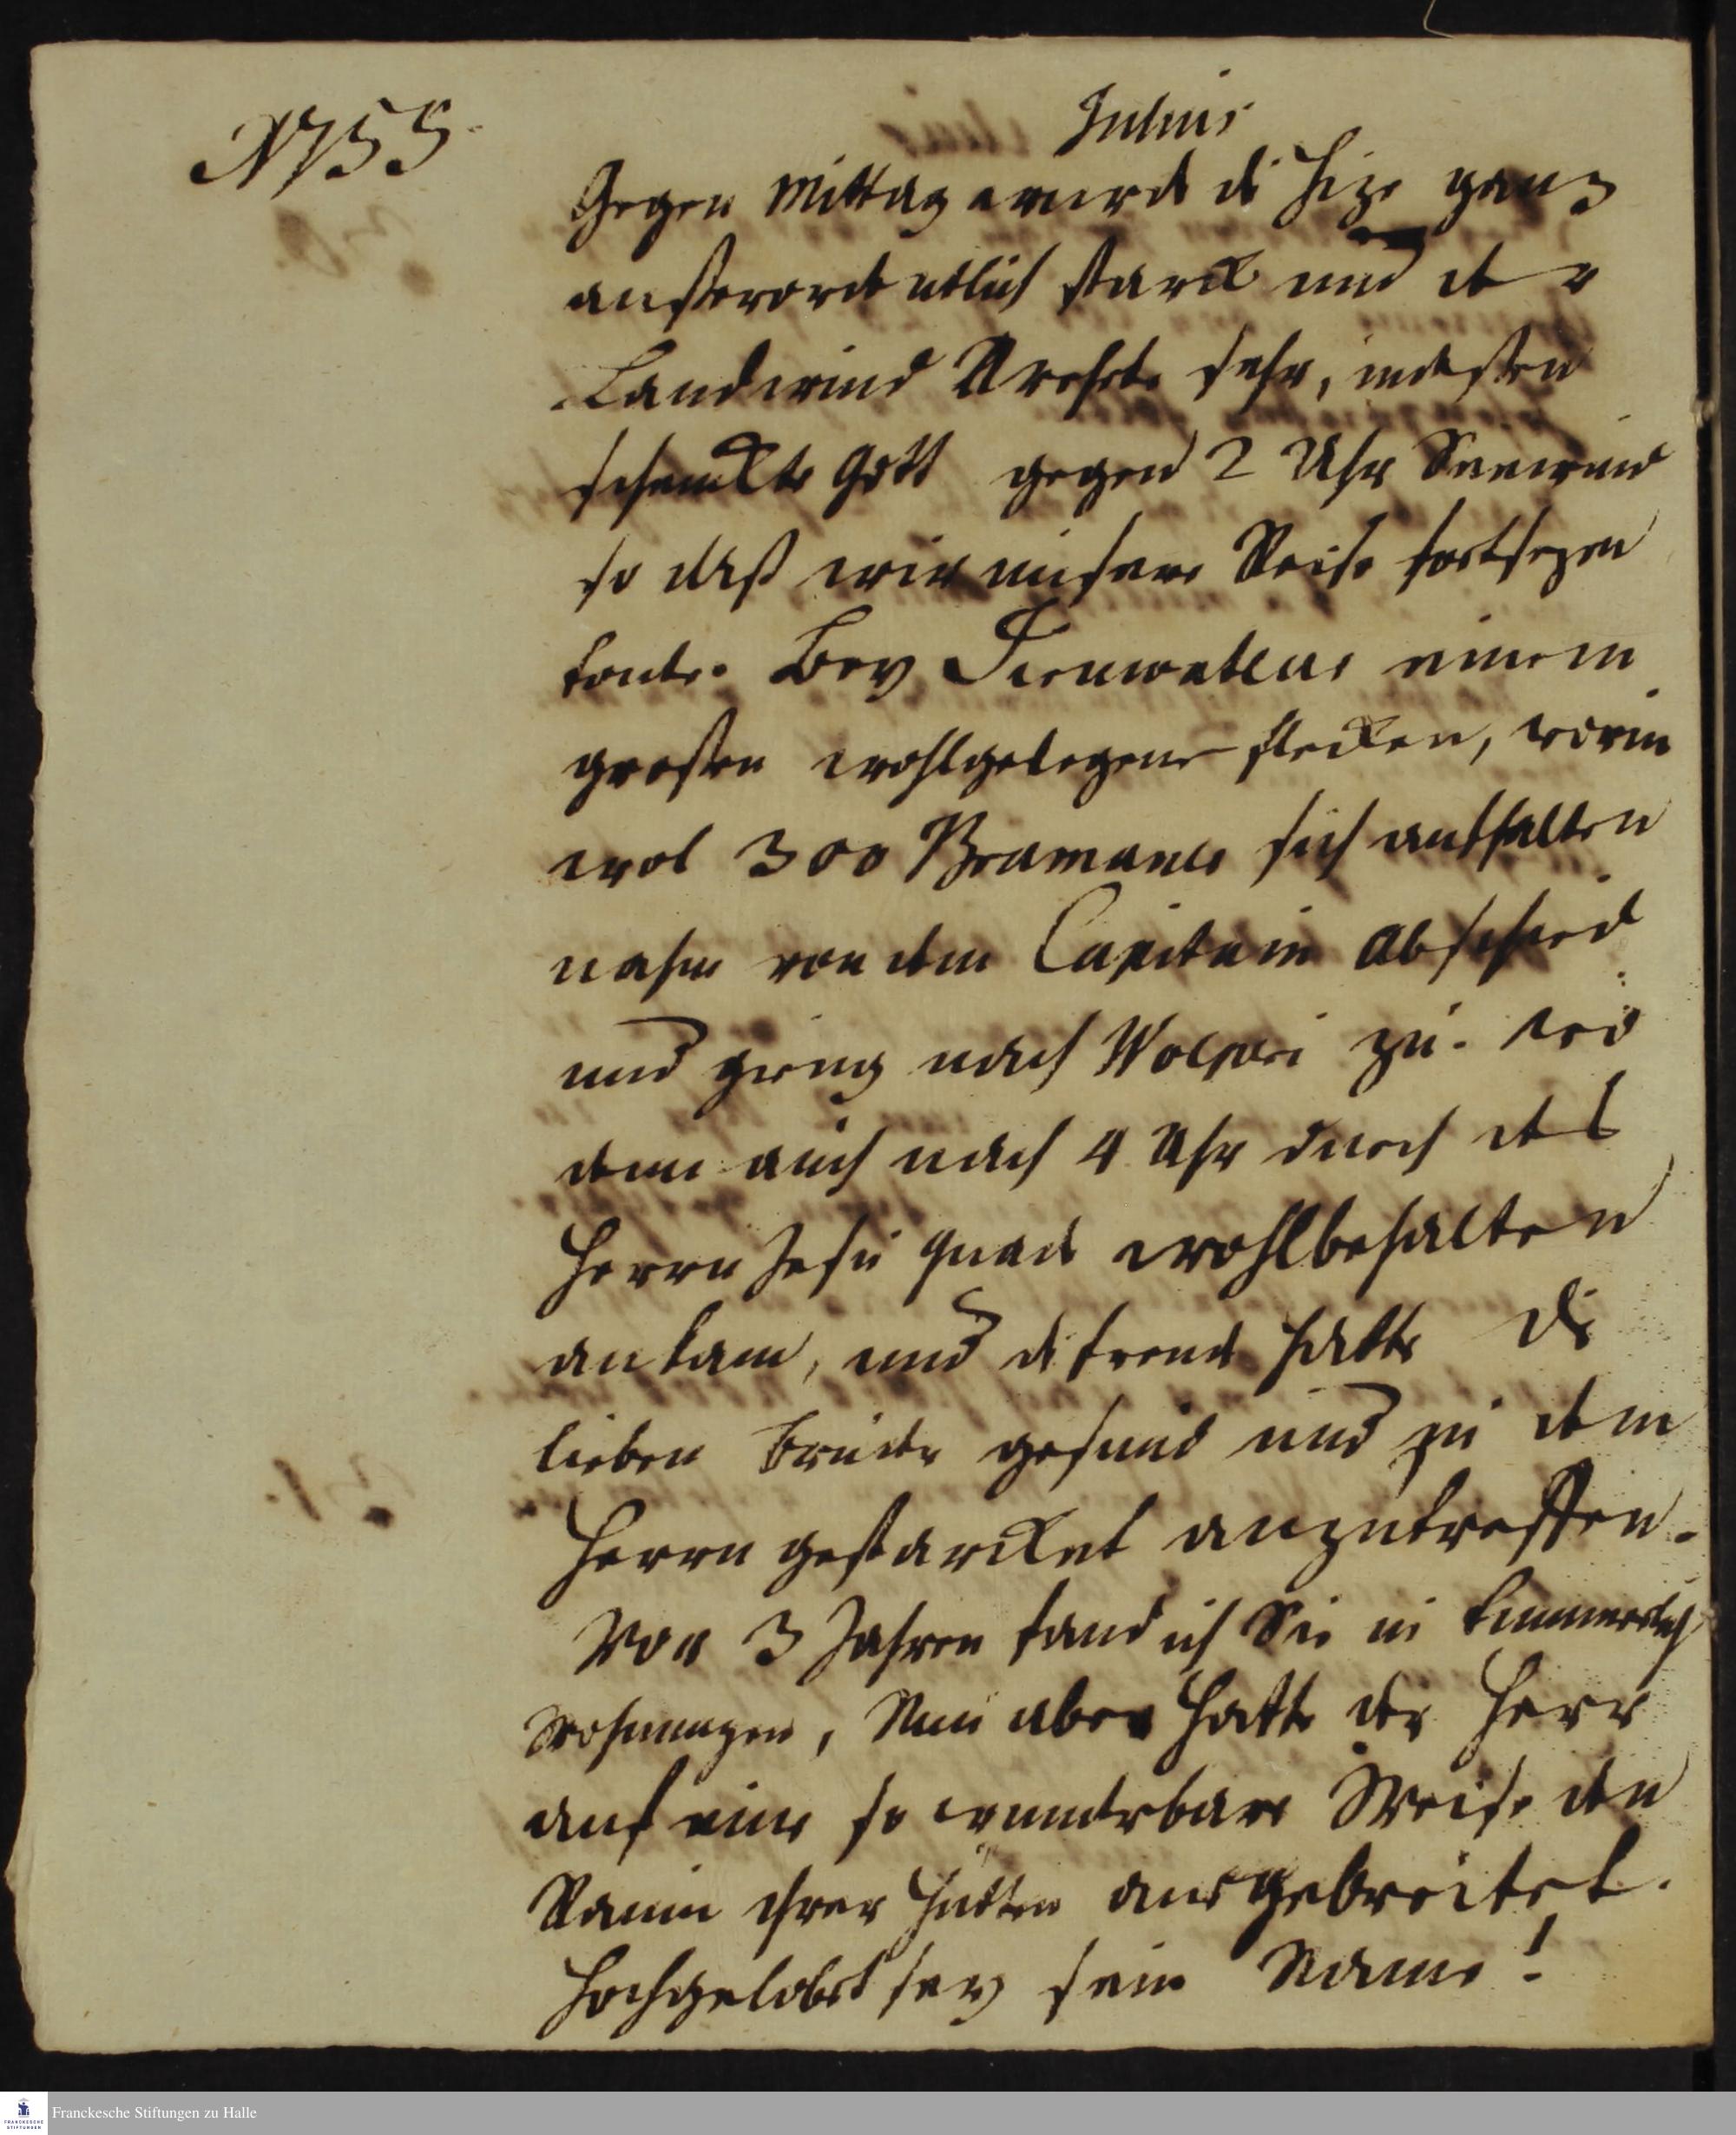 Julius
A 1755.
Gegen Mittag wurde die Hize ganz
außerordentlich starck und der
Landwind wehete sehr, indeßen
schenckte Gott gegen 2 Uhr Seewind
so daß wir unsere Reise fortsezen
konte. Bey einem
großen wohlgelegene flecken, worin
wol 300 Bramanes sich aufhalten
nahm von dem Capitain Abschied
und gieng nach zu. wo
denn auch nach 4 Uhr durch des
Herrn Jesu Gnade wohlbehalten
ankam, und die freude hatte die
lieben Brüder gesund und in dem
Herrn gestärcket anzutreffen.
Vor 3 Jahren fand ich Sie in kümmerlich
Wohnungen, Nun aber hatte der Herr
auf eine so wunderbare Weise den
Raum ihrer Hütten ausgebreitet.
Hochgelobet sey sein Name!
Franckesche Stiftungen zu Halle
FRANCKESCHE
STIFTUNGEN